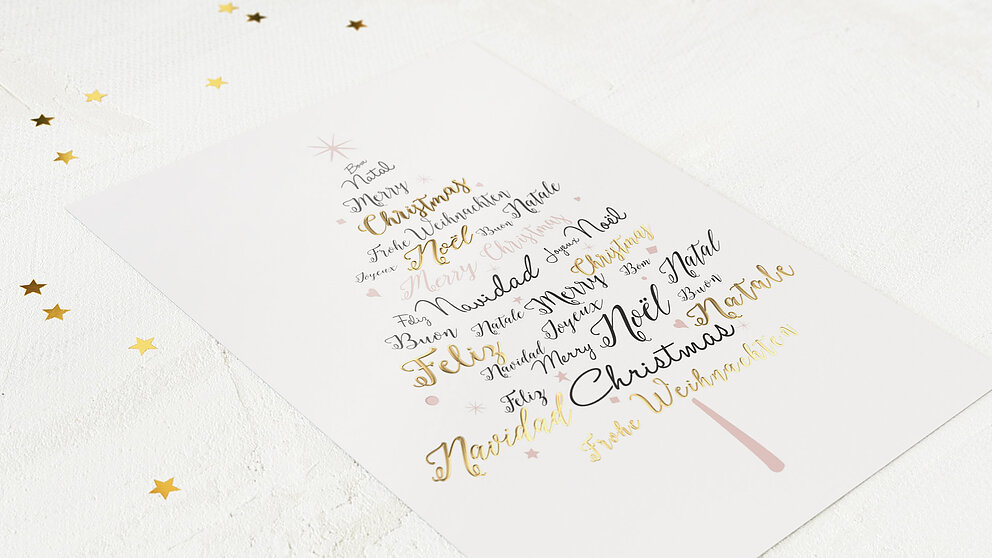 Bom
Natal
Merry
Christmas
Frohe Weihnachten
Joyeux Noël Buon Natale
Merry Christmas
Joyeux Noël
Feliz Navidad
Merry Christmas
Buon Natale
Bom Natal
Joyeux Noël
Buon Natale
Feliz Navidad
Merry Christmas
Feliz Navidad
Frohe Weihnachten